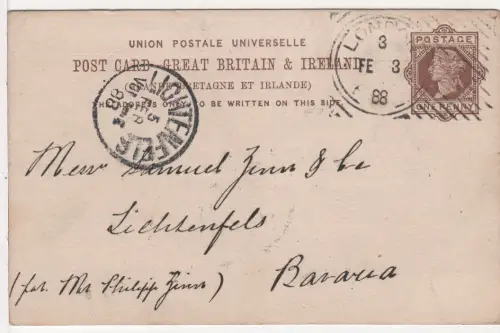 UNION POSTALE UNIVERSELLE
POST CARD - GREAT BRITAIN & IRELAND
(GRANDE BRETAGNE ET IRLANDE)
THE ADDRESS ONLY TO BE WRITTEN ON THIS SIDE
LONDON
3
FE 3
88
POSTAGE
ONE PENNY
LICHTENFELS
5
FEB
88
Messrs Samuel Zinn & Co
Lichtenfels
(for. Mr Philipp Zinn) Bavaria